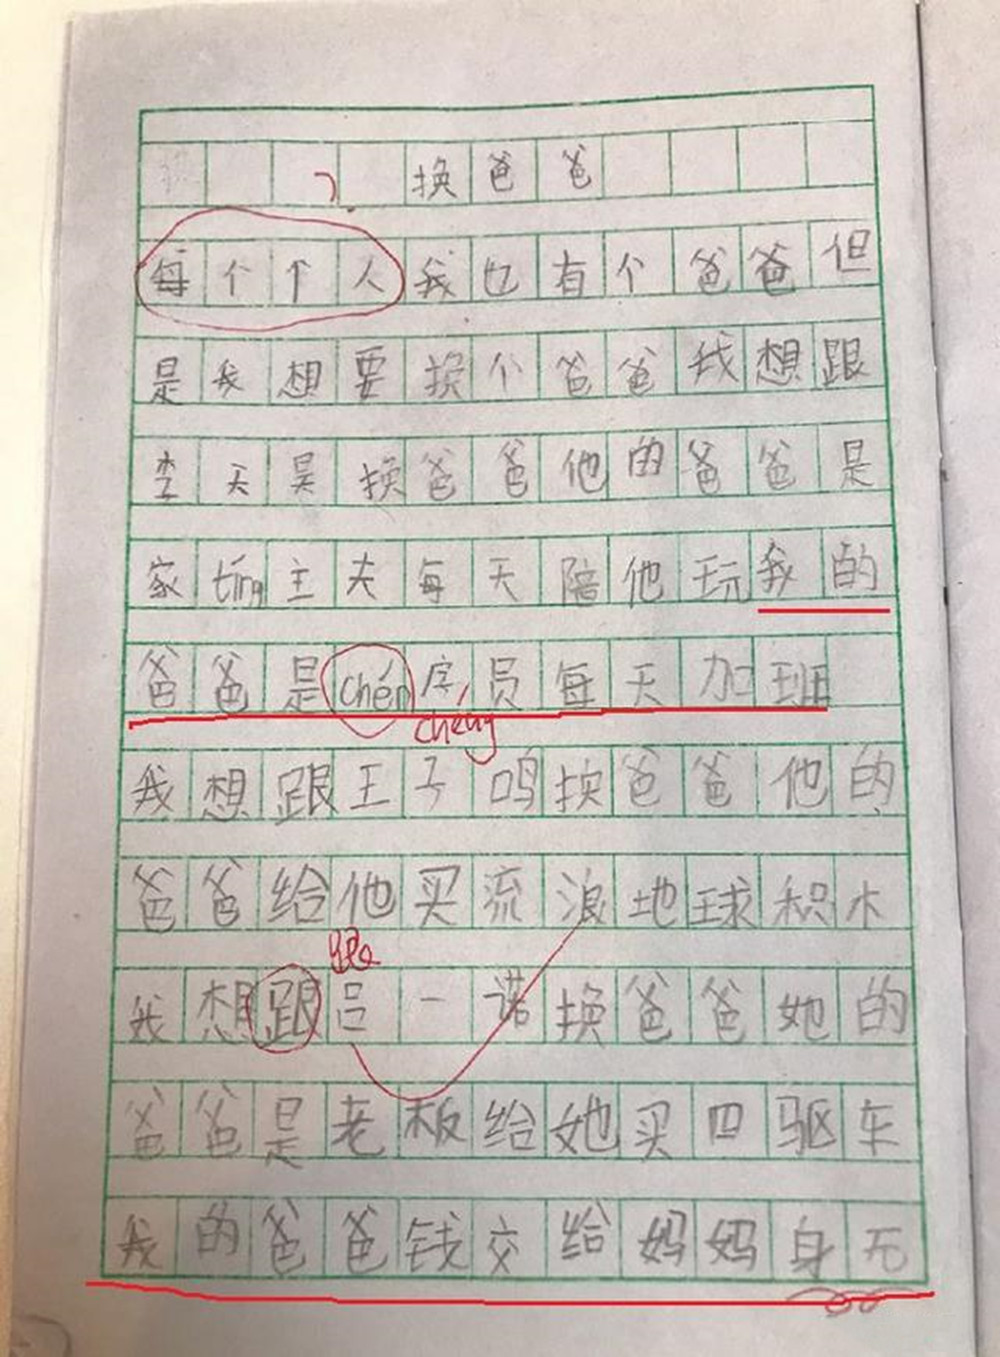 换爸爸
每个个人我也有个爸爸但
是我想要换个爸爸我想跟
李天昊换爸爸他的爸爸是
家tíng主夫每天陪他玩我的
爸爸是chén序员每天加班
chéng
我想跟王子鸣换爸爸他的
爸爸给他买流浪地球积木
跟
我想跟吕一诺换爸爸她的
爸爸是老板给她买四驱车
我的爸爸钱交给妈妈身无